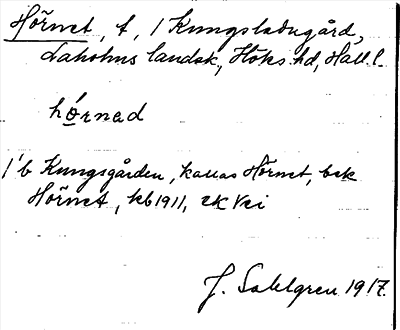 Hörnet, t, 1 Kungsladugård,
Laholms landsk, Höks hd, Hall.l.
hǫ́rnəd
1/6 Kungsgården, kallas Hörnet, bek
Hörnet, kb 1911, ek
J. Sahlgren 1917.